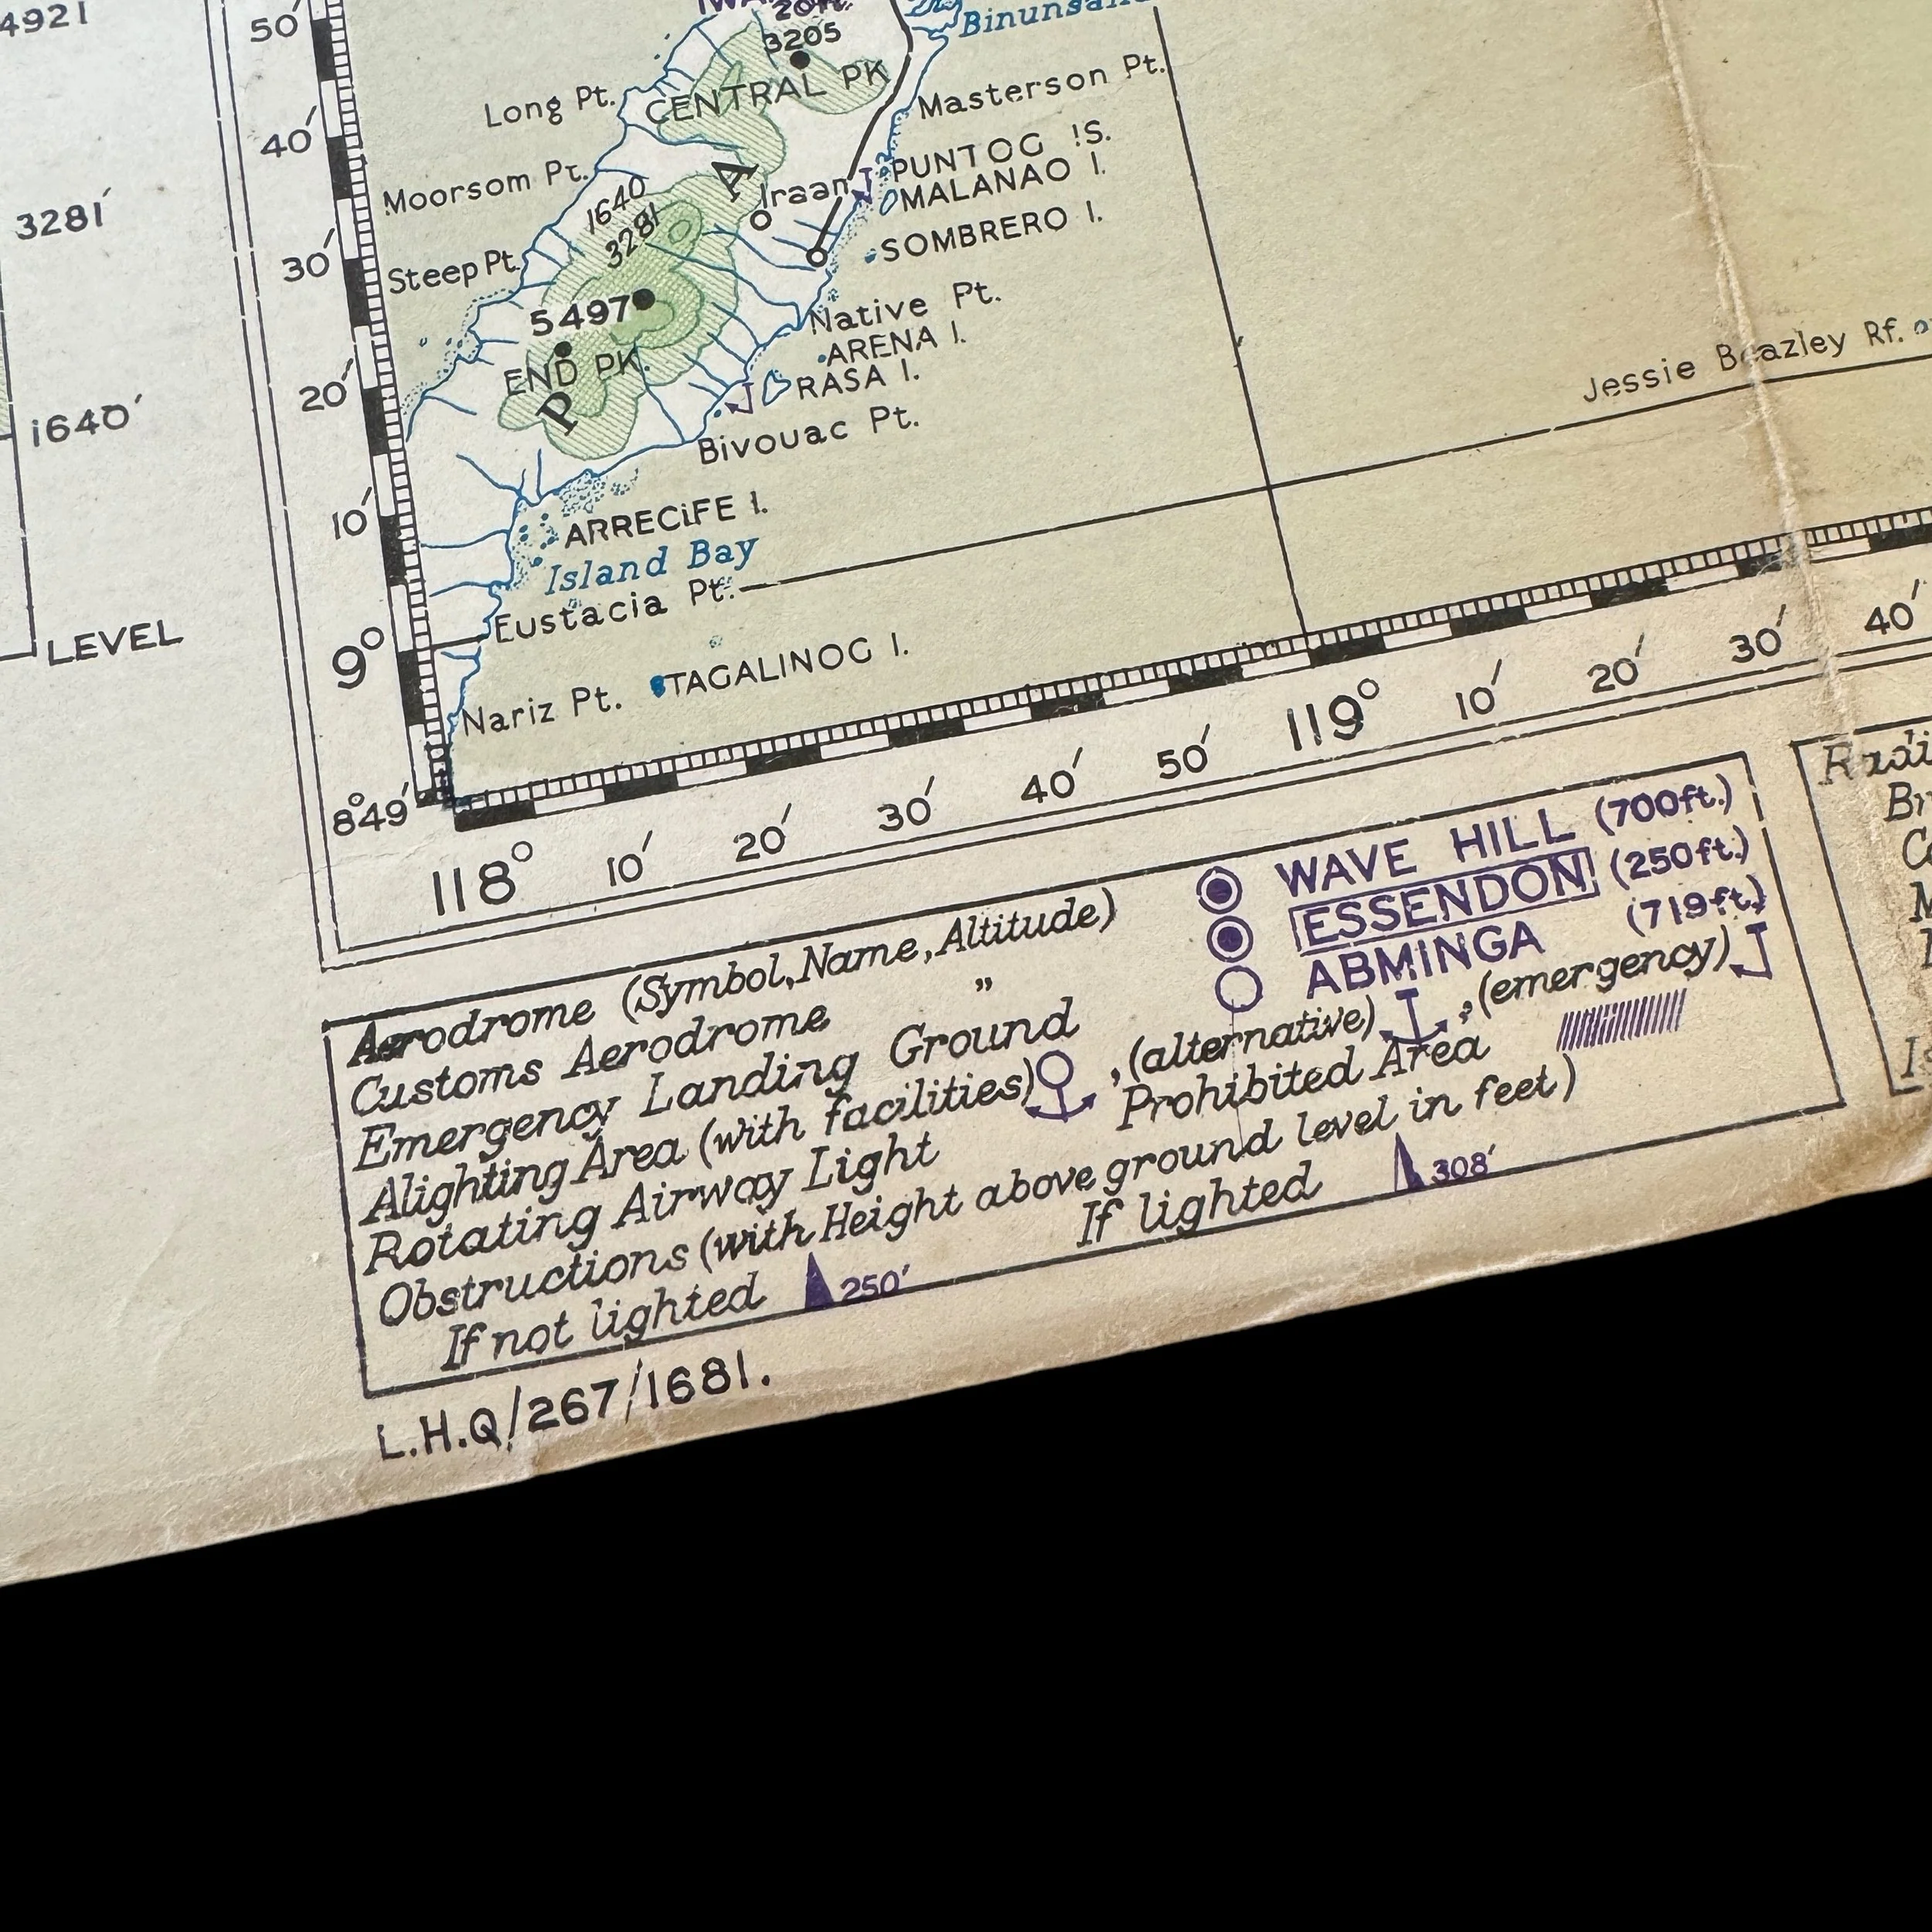 4921
3281'
1640'
LEVEL
50'
40'
30'
20'
10'
9°
8°49'
20ft.
3205
CENTRAL PK
Long Pt.
Masterson Pt.
Moorsom Pt.
1640
3281
A
Iraan
PUNTOG IS.
MALANAO I.
SOMBRERO I.
Steep Pt.
5497
Native Pt.
ARENA I.
END PK.
RASA I.
P
Bivouac Pt.
Jessie Beazley Rf.
ARRECIFE I.
Island Bay
Eustacia Pt.
TAGALINOG I.
Nariz Pt.
118° 10' 20' 30' 40' 50' 119° 10' 20' 30' 40'
Aerodrome (Symbol, Name, Altitude) WAVE HILL (700ft.)
Customs Aerodrome „ ESSENDON (250ft.)
Emergency Landing Ground ABMINGA (719ft.)
Alighting Area (with facilities) , (alternative) , (emergency)
Rotating Airway Light Prohibited Area
Obstructions (with Height above ground level in feet)
If not lighted 250' If lighted 308'
L.H.Q/267/1681.